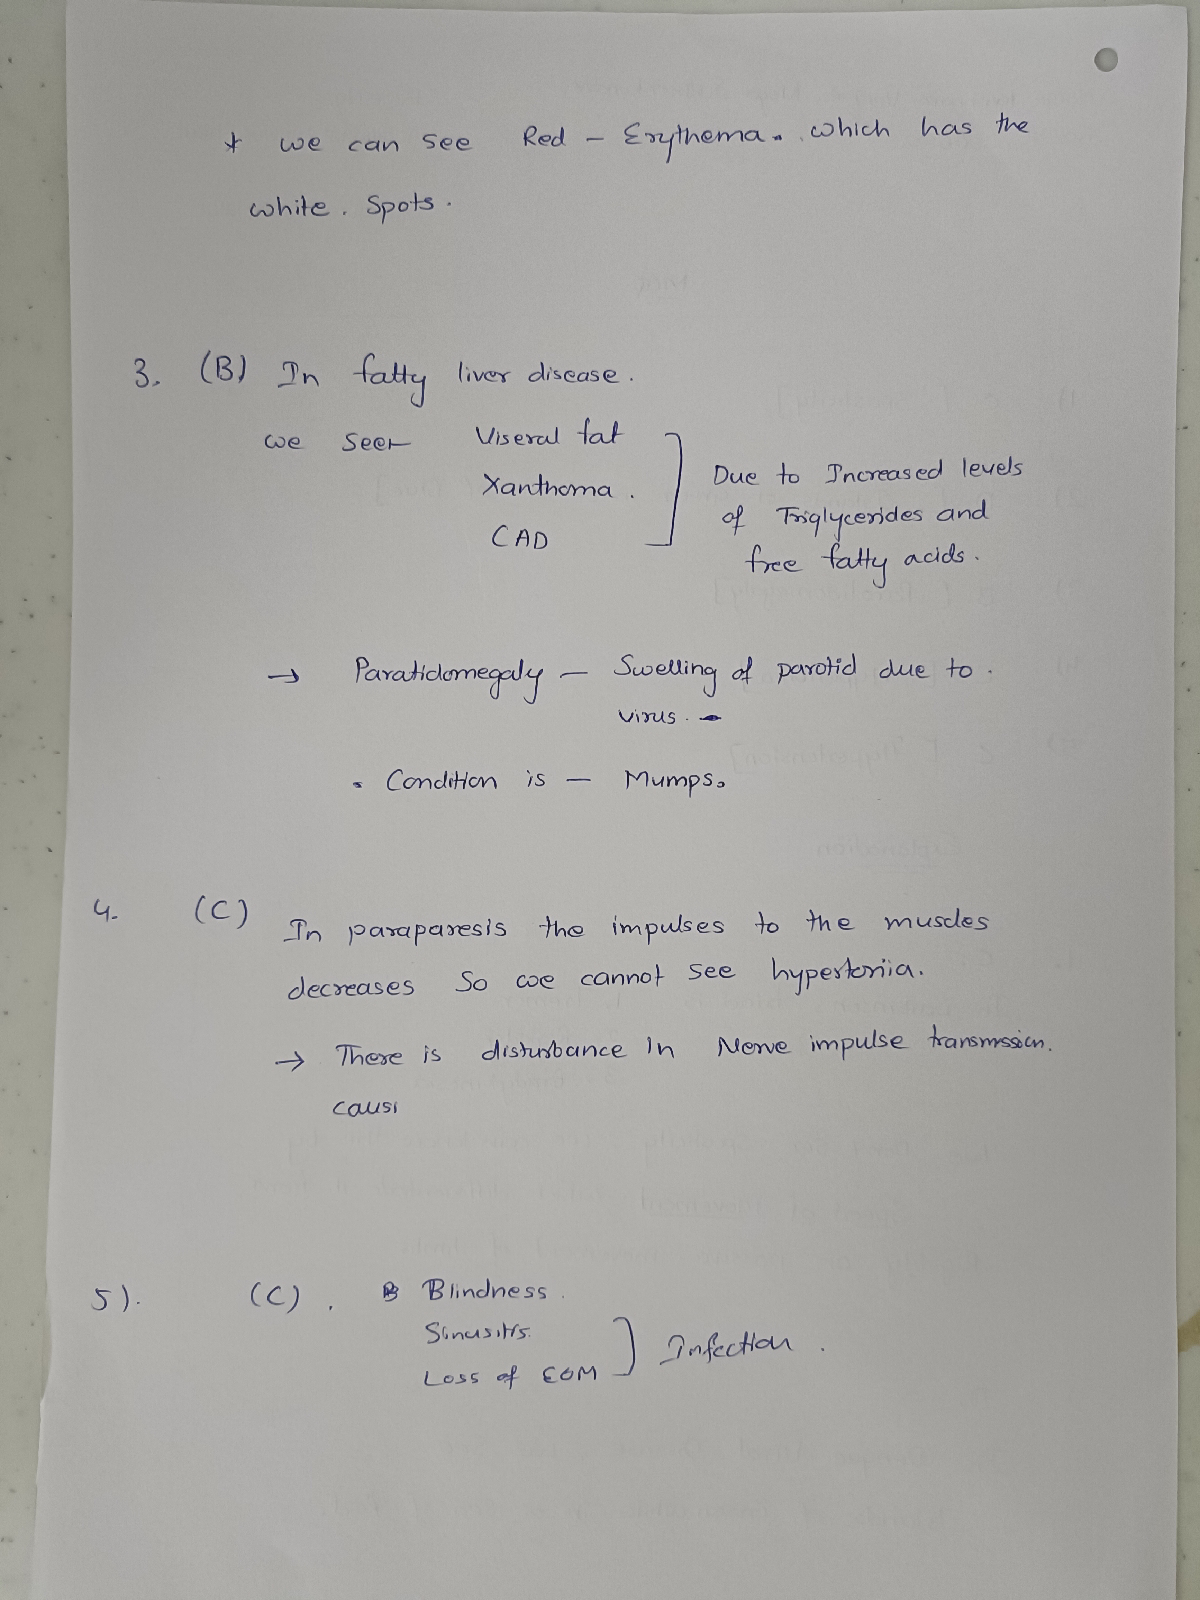 * we can see Red - Erythema. which has the
white. Spots.
3. (B) In fatty liver disease.
we seen Viseral fat
Xanthoma.
CAD
Due to Increased levels
of Triglycerides and
free fatty acids.
→ Paratidomegaly - Swelling of parotid due to.
virus. -
• Condition is - Mumps.
4. (C) In paraparesis the impulses to the muscles
decreases So we cannot see hypertonia.
→ There is disturbance In Nerve impulse transmission.
causi
5). (C). Blindness.
Sinusitis.
Loss of EOM
Infection.